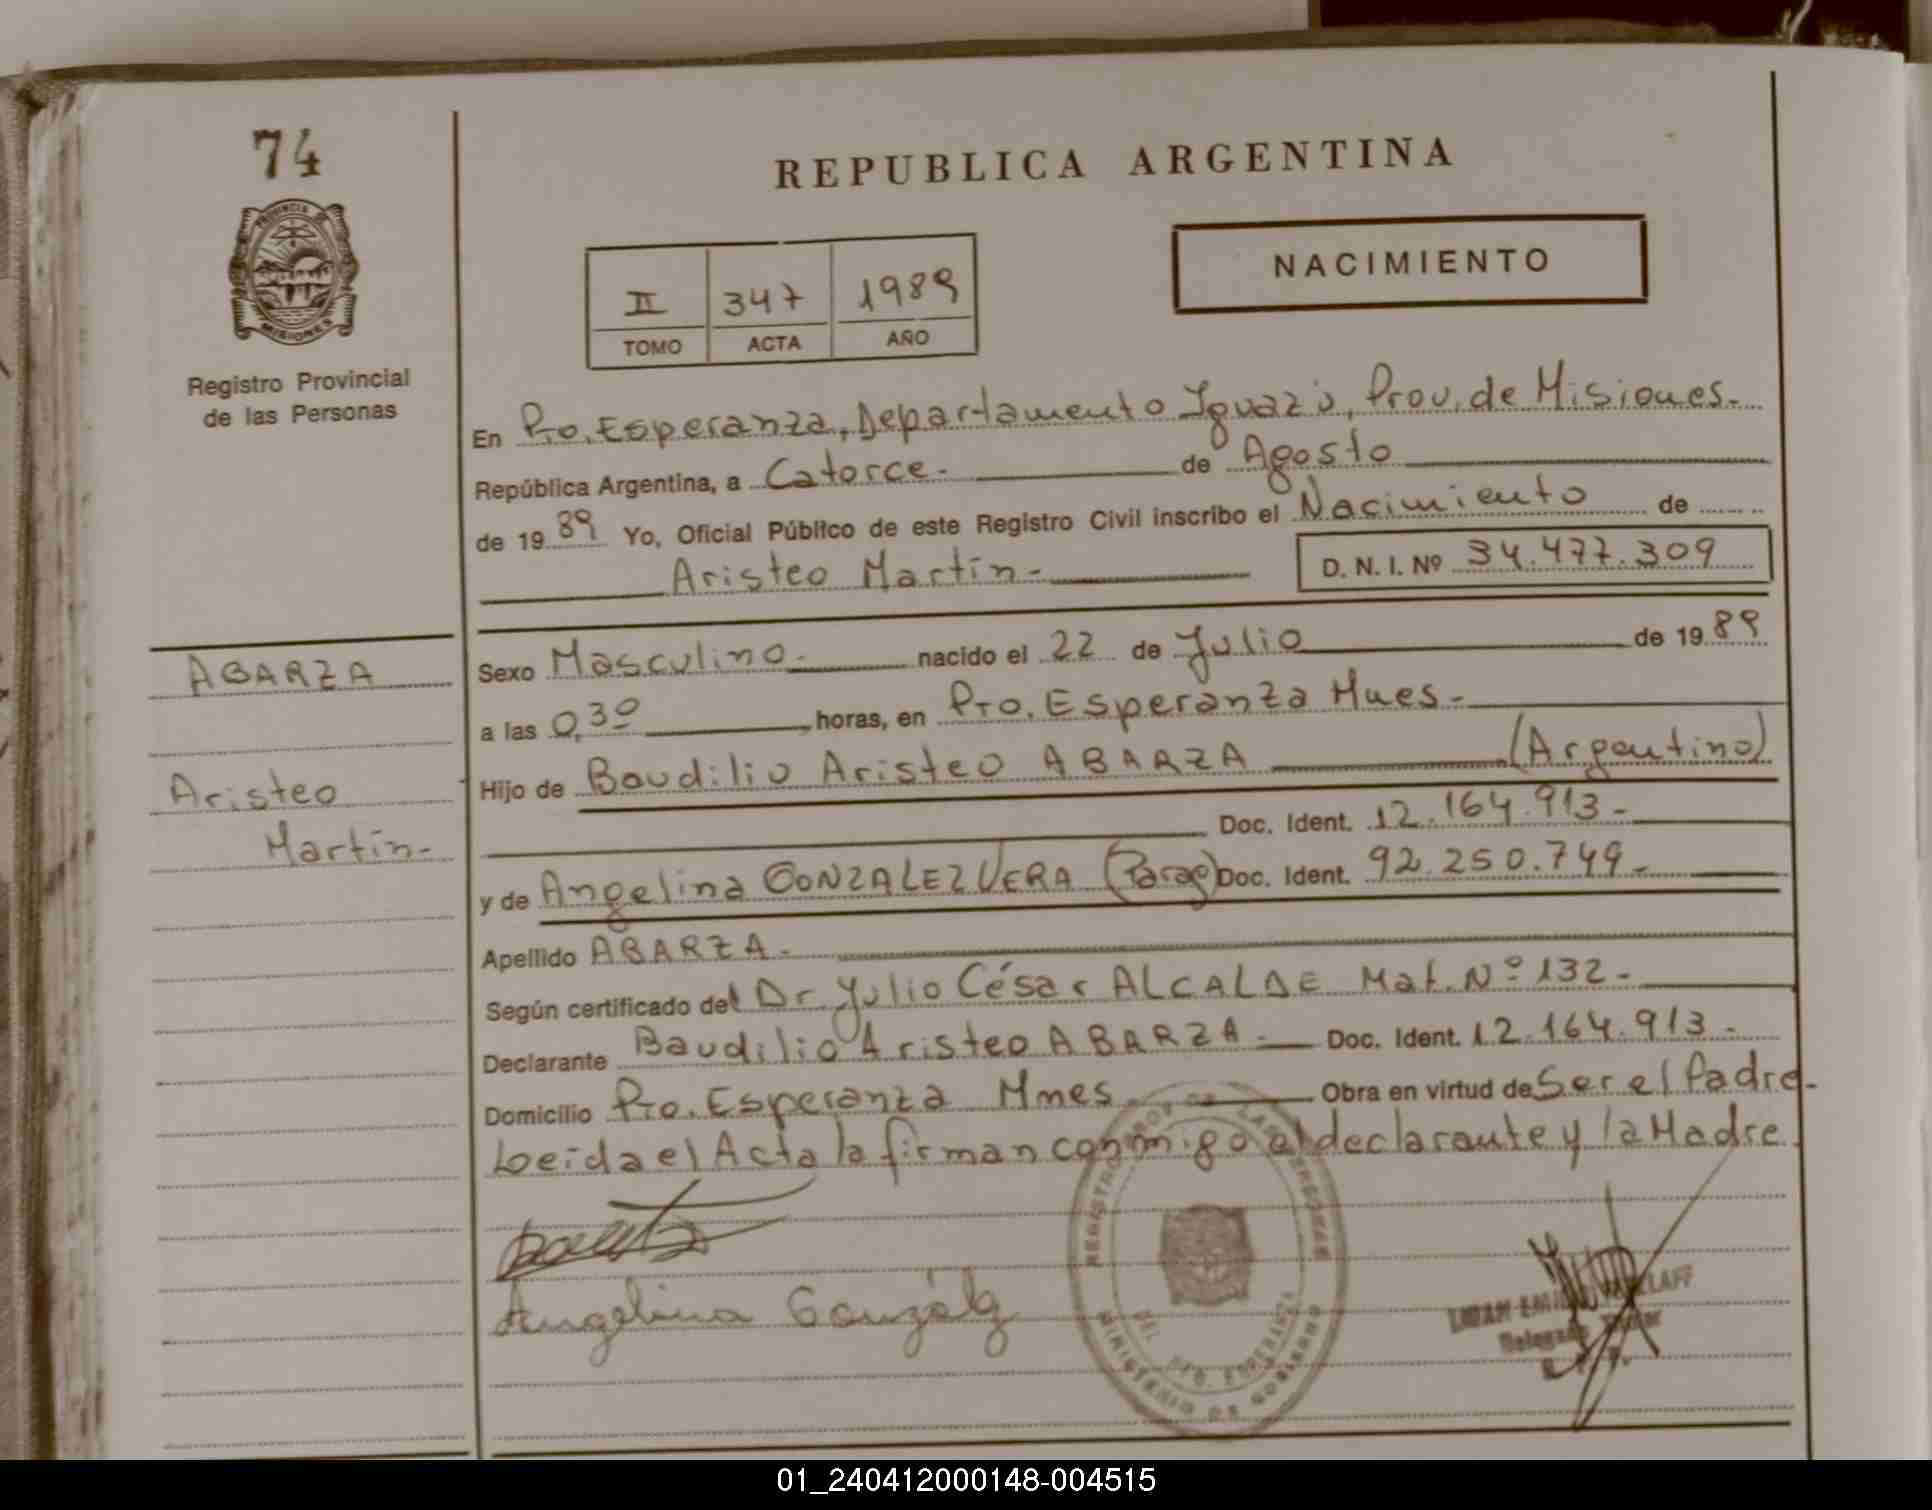 74
PROVINCIA DE
MISIONES
Registro Provincial
de las Personas
REPUBLICA ARGENTINA
II 347 1989
TOMO ACTA AÑO
NACIMIENTO
En Pto. Esperanza, Departamento Iguazú, Prov. de Misiones.
República Argentina, a Catorce.- de Agosto
de 1989 Yo, Oficial Público de este Registro Civil inscribo el Nacimiento de
Aristeo Martín.-
D. N. I. Nº 34.477.309
ABARZA
Aristeo
Martín.-
Sexo Masculino.- nacido el 22 de Julio de 1989
a las 0,30 horas, en Pto. Esperanza Mnes.-
Hijo de Baudilio Aristeo ABARZA (Argentino)
Doc. Ident. 12.164.913.-
y de Angelina GONZALEZ VERA (Parag) Doc. Ident. 92.250.749.-
Apellido ABARZA.-
Según certificado del Dr Julio César ALCALDE Mat. Nº 132.-
Declarante Baudilio Aristeo ABARZA.- Doc. Ident. 12.164.913.-
Domicilio Pto. Esperanza Mnes. Obra en virtud de Ser el Padre.
Leida el Acta la firman conmigo el declarante y la Madre.
Angelina González
REGISTRO PROV. DE LAS PERSONAS
DEL. PTO. ESPERANZA
MINISTERIO DE GOBIERNO
Delegado Titular
01_240412000148-004515